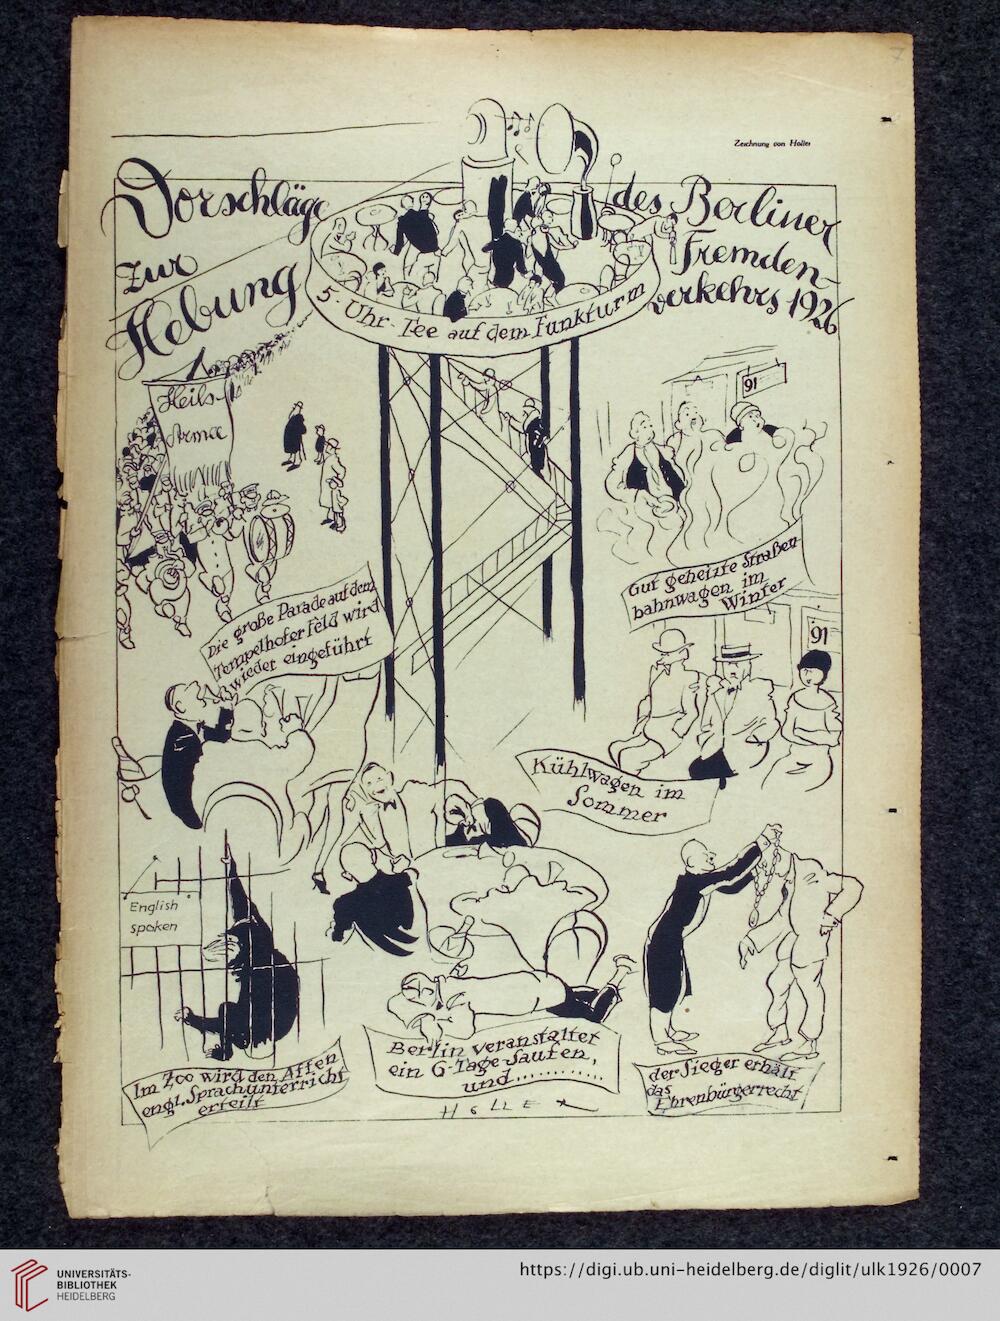 7
Zeichnung von Holler
Vorschläge
zur
Hebung
des Berliner
Fremden-
verkehrs 1926
5-Uhr-Tee auf dem Funkturm
Heils-
Armee
91
Die große Parade auf dem
Tempelhofer Feld wird
wieder eingeführt
Gut geheizte Straßen
bahnwagen im
Winter
91
Kühlwagen im
Sommer
English
spoken
Im Zoo wird den Affen
engl. Sprachunterricht
erteilt
Berlin veranstaltet
ein 6-Tage-Saufen,
und............
der Sieger erhält
das
Ehrenbürgerrecht
HOLLER
UNIVERSITÄTS-
BIBLIOTHEK
HEIDELBERG
https://digi.ub.uni-heidelberg.de/diglit/ulk1926/0007